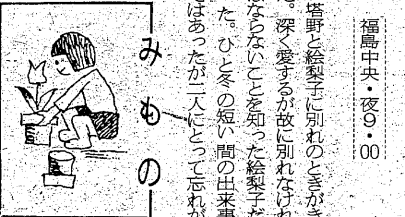 福島中央・夜9・00
塔野と絵梨子に別れのときがき
。深く愛するが故に別れなけれ
ばならないことを知った絵梨子だ
た。ひと冬の短い間の出来事
ではあったが二人にとって忘れが
みもの